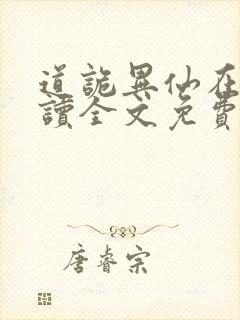 道詭異仙在
讀全文免費
唐睿宗